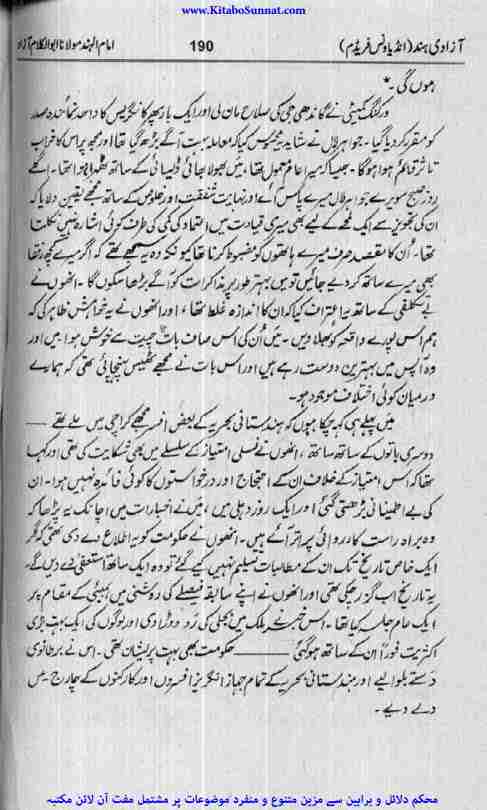 www.KitaboSunnat.com
آزادیٔ ہند (انڈیا ونس فریڈم) 190 امام الہند مولانا ابوالکلام آزاد
ہوں گی۔*
ورکنگ کمیٹی نے گاندھی جی کی صلاح مان لی اور ایک بار پھر کانگریس کا واحد نمائندہ صدر
کو مقرر کر دیا گیا۔ جواہر لال نے شاید یہ محسوس کیا کہ معاملہ بہت آگے بڑھ گیا تھا اور مجھ پر اس کا خراب
تاثر قائم ہوا ہوگا۔ جیسا کہ میرا عام معمول تھا، میں بھولا بھائی ڈیسائی کے ساتھ ٹھہرا ہوا تھا۔ اگلے
روز صبح سویرے جواہر لال میرے پاس آئے اور نہایت شفقت اور خلوص کے ساتھ مجھے یقین دلایا کہ
ان کی تجویز سے ایک لمحے کے لیے بھی میری قیادت میں اعتماد کی کمی کی طرف کوئی اشارہ نہیں نکلتا
تھا۔ اُن کا مقصد صرف میرے ہاتھوں کو مضبوط کرنا تھا کیونکہ وہ یہ سمجھے تھے کہ اگر میرے کچھ رفقا
بھی میرے ساتھ کر دیے جائیں تو میں بہتر طور پر مذاکرات کو آگے بڑھا سکوں گا۔ انھوں نے
بے تکلفی کے ساتھ یہ اعتراف کیا کہ ان کا اندازہ غلط تھا، اور انھوں نے یہ خواہش ظاہر کی کہ
ہم اس پورے واقعہ کو بھلا دیں۔ میں اُن کی اس صاف بات چیت سے خوش ہوا۔ میں اور
وہ آپس میں بہترین دوست رہے ہیں اور اس بات نے مجھے ٹھیس پہنچائی تھی کہ ہمارے
درمیان کوئی اختلاف موجود ہو۔
میں پہلے ہی کہہ چکا ہوں کہ ہندستانی بحریہ کے بعض افسر مجھے کراچی میں ملے تھے ——
دوسری باتوں کے ساتھ ساتھ، انھوں نے نسلی امتیاز کے سلسلے میں بھی شکایت کی تھی اور کہا
تھا کہ اس امتیاز کے خلاف ان کے احتجاج اور درخواستوں کا کوئی فائدہ نہیں ہوا۔ ان
کی بے اطمینانی بڑھتی گئی اور ایک روز دہلی میں، میں نے اخبارات میں اچانک یہ پڑھا کہ
وہ براہ راست کارروائی پر اتر آئے ہیں۔ انھوں نے حکومت کو یہ اطلاع دے دی تھی کہ اگر
ایک خاص تاریخ تک ان کے مطالبات تسلیم نہیں کیے گئے تو وہ ایک ساتھ استعفیٰ دے دیں گے۔
یہ تاریخ اب گزر چکی تھی اور انھوں نے اپنے سابقہ فیصلے کی روشنی میں بمبئی کے مقام پر
ایک عام جلسہ کیا تھا۔ اس خبر نے ملک میں بجلی کی رَو دوڑا دی اور لوگوں کی ایک بہت بڑی
اکثریت فوراً ان کے ساتھ ہو گئی —— حکومت بھی بہت پریشان تھی۔ اس نے برطانوی
دستے بلوا لیے اور ہندستانی بحریہ کے تمام جہاز انگریز افسروں اور کارکنوں کے چارج میں
دے دیے۔
محکم دلائل و براہین سے مزین متنوع و منفرد موضوعات پر مشتمل مفت آن لائن مکتبہ